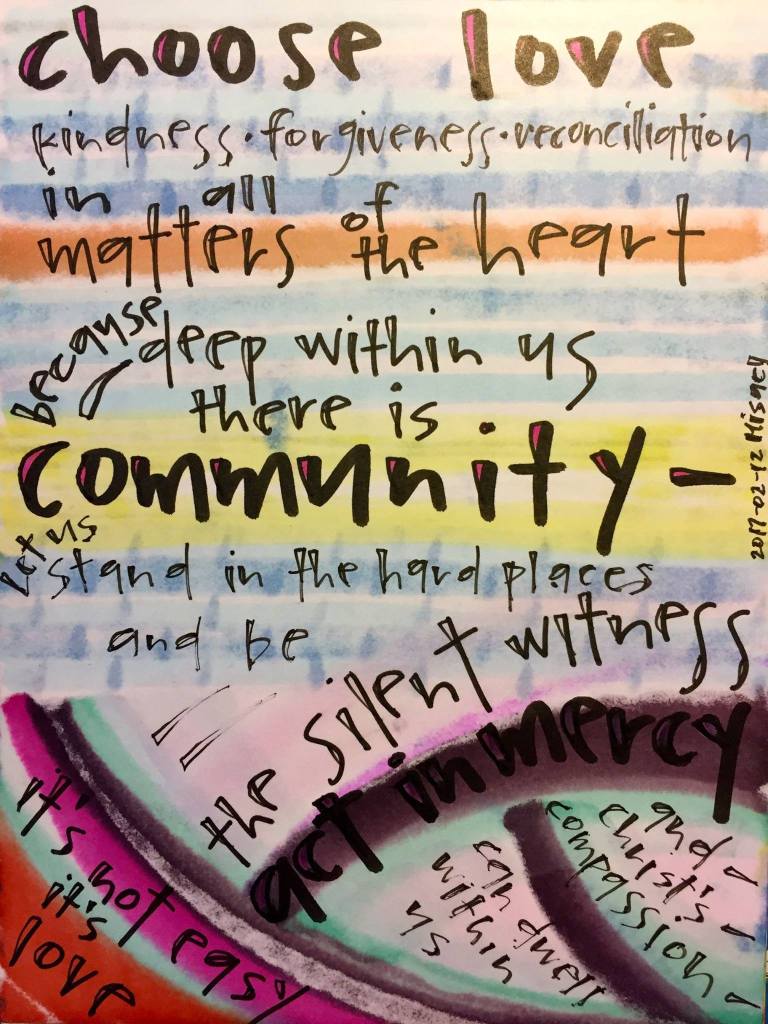 choose love
kindness·forgiveness·reconciliation
in all
matters of the heart
because deep within us
there is
community-
let us
stand in the hard places
and be
the silent witness
act in mercy
and
christ's
compassion
can dwell
within
us
it's not easy
it's
love
2017-02-12